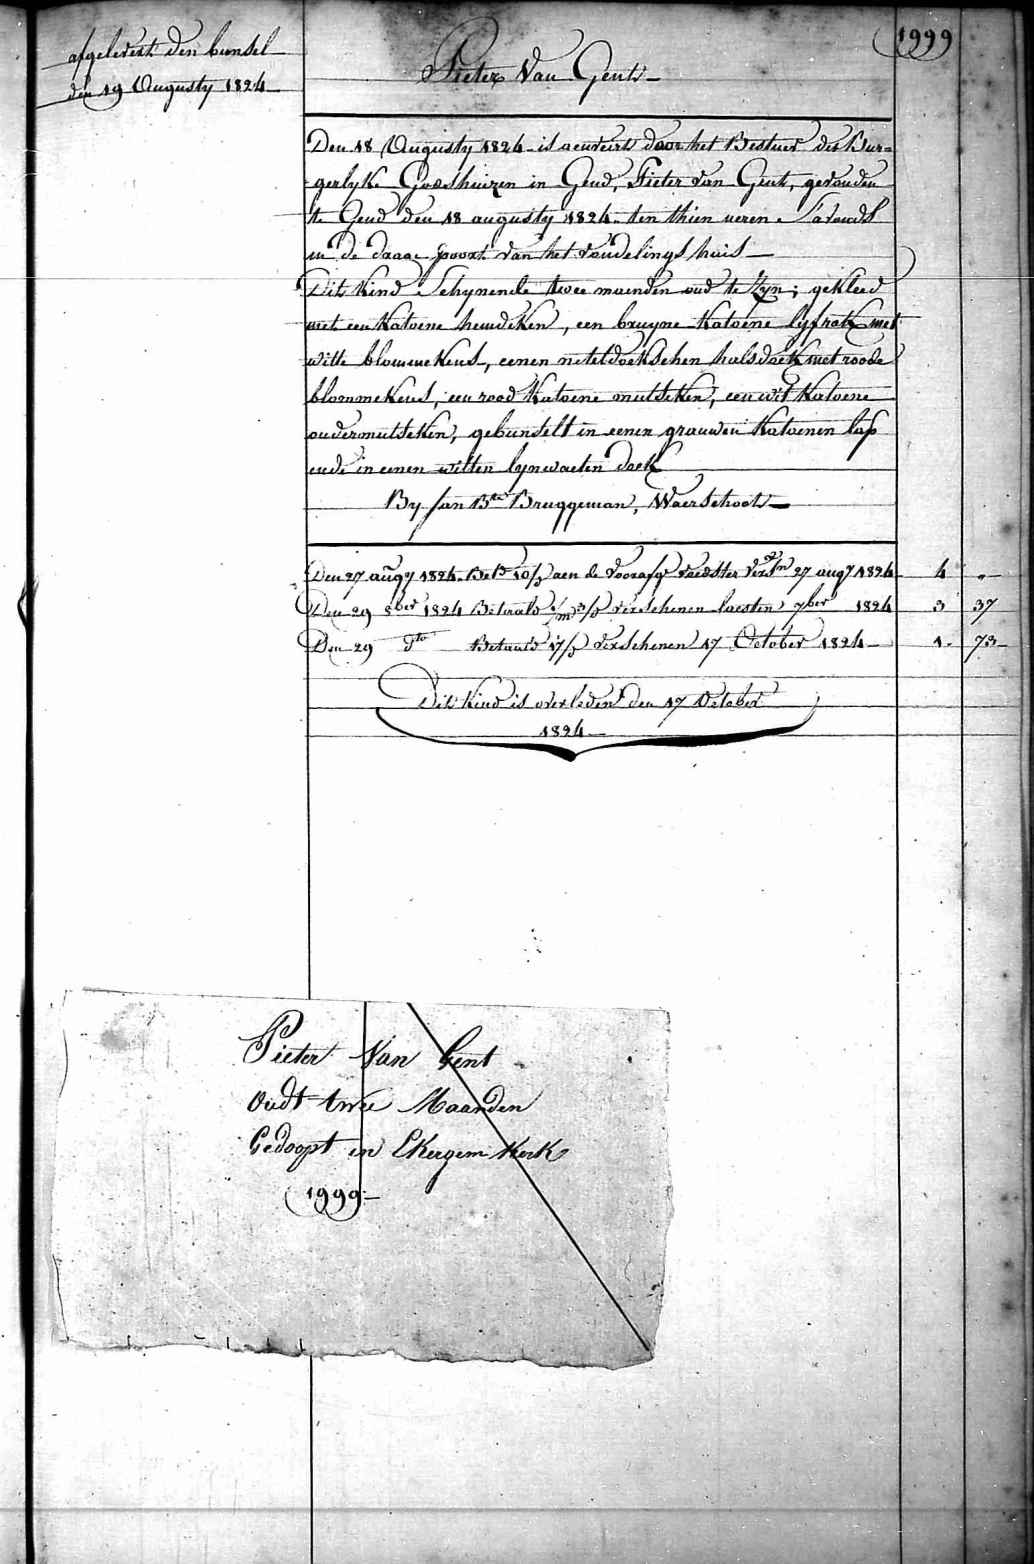 1999
afgelevert den bunsel
den 19 Augusty 1824
Pieter Van Gent
Den 18 Augusty 1824 is aenveert door het Bestuer der Bur=
gerlyke Godshuizen in Gend, Pieter van Gent, gevonden
te Gend den 18 augusty 1824 ten thien ueren S'avonds
in de draage poort van het vondelings huis
Dit Kind Schynende twee maenden oud te Zyn; gekleed
met een Katoene hemdeken, een bruyne Katoene lyfrok met
witte blommekens, eenen neteldoekschen halsdoek met roode
blommekens, een rood Katoene mutseken, een wit Katoene
ondermutseken, gebunselt in eenen grauwen Katoenen lap
ende in eenen witten lynwaeten doek
By Jan Bte Bruggeman, Waerschoot
Den 27 augy 1824 Bet 10/ aen de voorafge Voedster 27 augy 1824 4 "
Den 29 8ber 1824 Betaald verschenen laesten 7ber 1824 3 37
Den 29 dto Betaald 17/ verschenen 17 October 1824 1 73
Dit Kind is overleden den 17 October
1824
Pieter Van Gent
Oudt twee Maanden
Gedoopt in Ekergem Kerk
1999